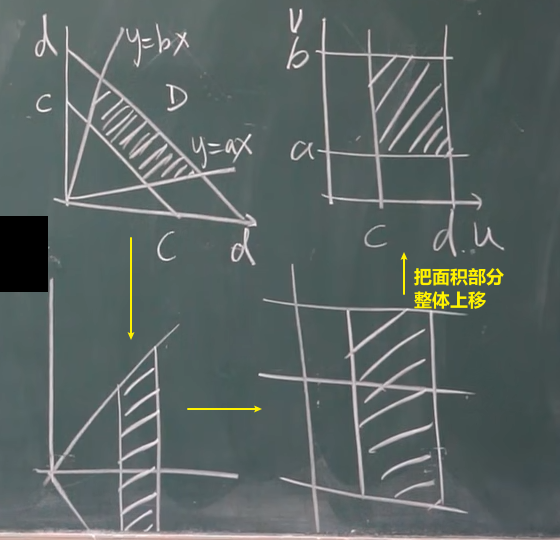 d
y=bx
c
D
y=ax
C
d
V
b
a
c
d.u
把面积部分
整体上移